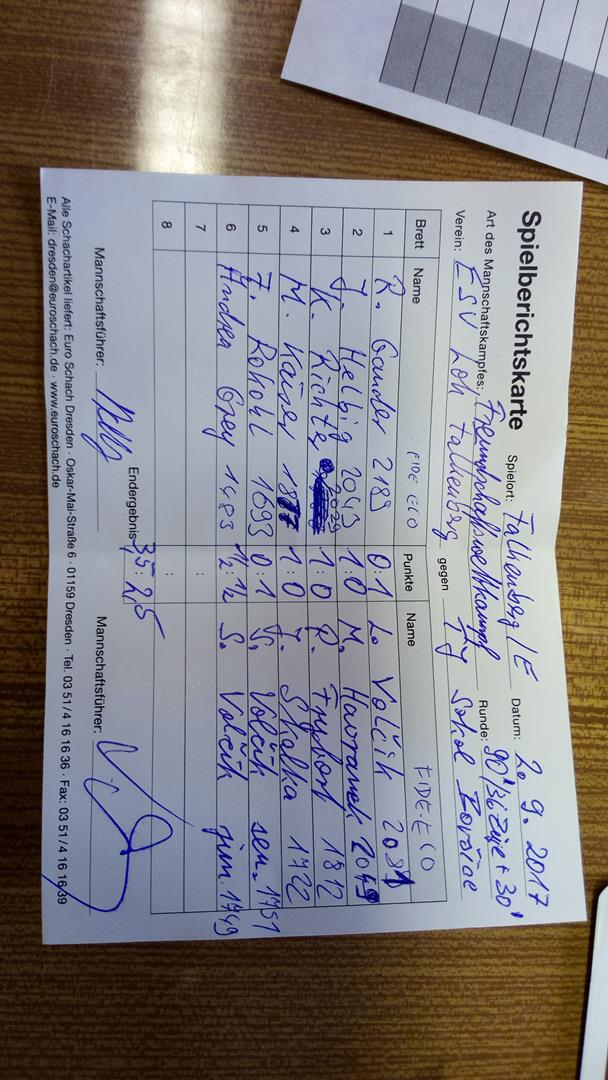 Spielberichtskarte Spielort: Falkenberg/E Datum: 2.9.2017
Art des Mannschaftskampfes: Freundschaftswettkampf Runde: 90'/36 Züge + 30'
Verein: ESV Lok Falkenberg gegen TJ Sokol
Brett Name FIDE ELO Punkte Name FIDE-ELO
1 R. Gander 2189 0:1 L. Volčík 2081
2 J. Helbig 2043 1:0 M. Havranek 2049
3 K. Richter 1:0 R. 1812
4 M. Kaiser 1877 1:0 J. Skalka 1722
5 F. Rokohl 1693 0:1 Volčík sen. 1751
6 Andrea Grey 1483 1/2:1/2 S. Volčík jun. 1749
7 :
8 :
Endergebnis 3,5:2,5
Mannschaftsführer: Mannschaftsführer:
Alle Schachartikel liefert: Euro Schach Dresden · Oskar-Mai-Straße 6 · 01159 Dresden · Tel. 03 51/4 16 16 36 · Fax: 03 51/4 16 16 39
E-Mail: dresden@euroschach.de · www.euroschach.de